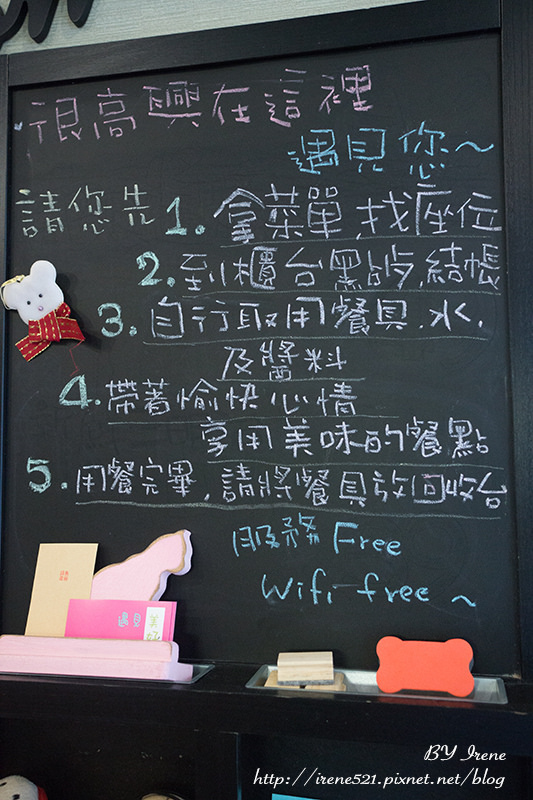 很高興在這裡
遇見您~
請您先 1. 拿菜單,找座位
2. 到櫃台點餐,結帳
3. 自行取用餐具.水.
及醬料
4. 帶著愉快心情
享用美味的餐點
5. 用餐完畢,請將餐具放回收台
服務 Free
Wifi free ~
BY Irene
http://irene521.pixnet.net/blog